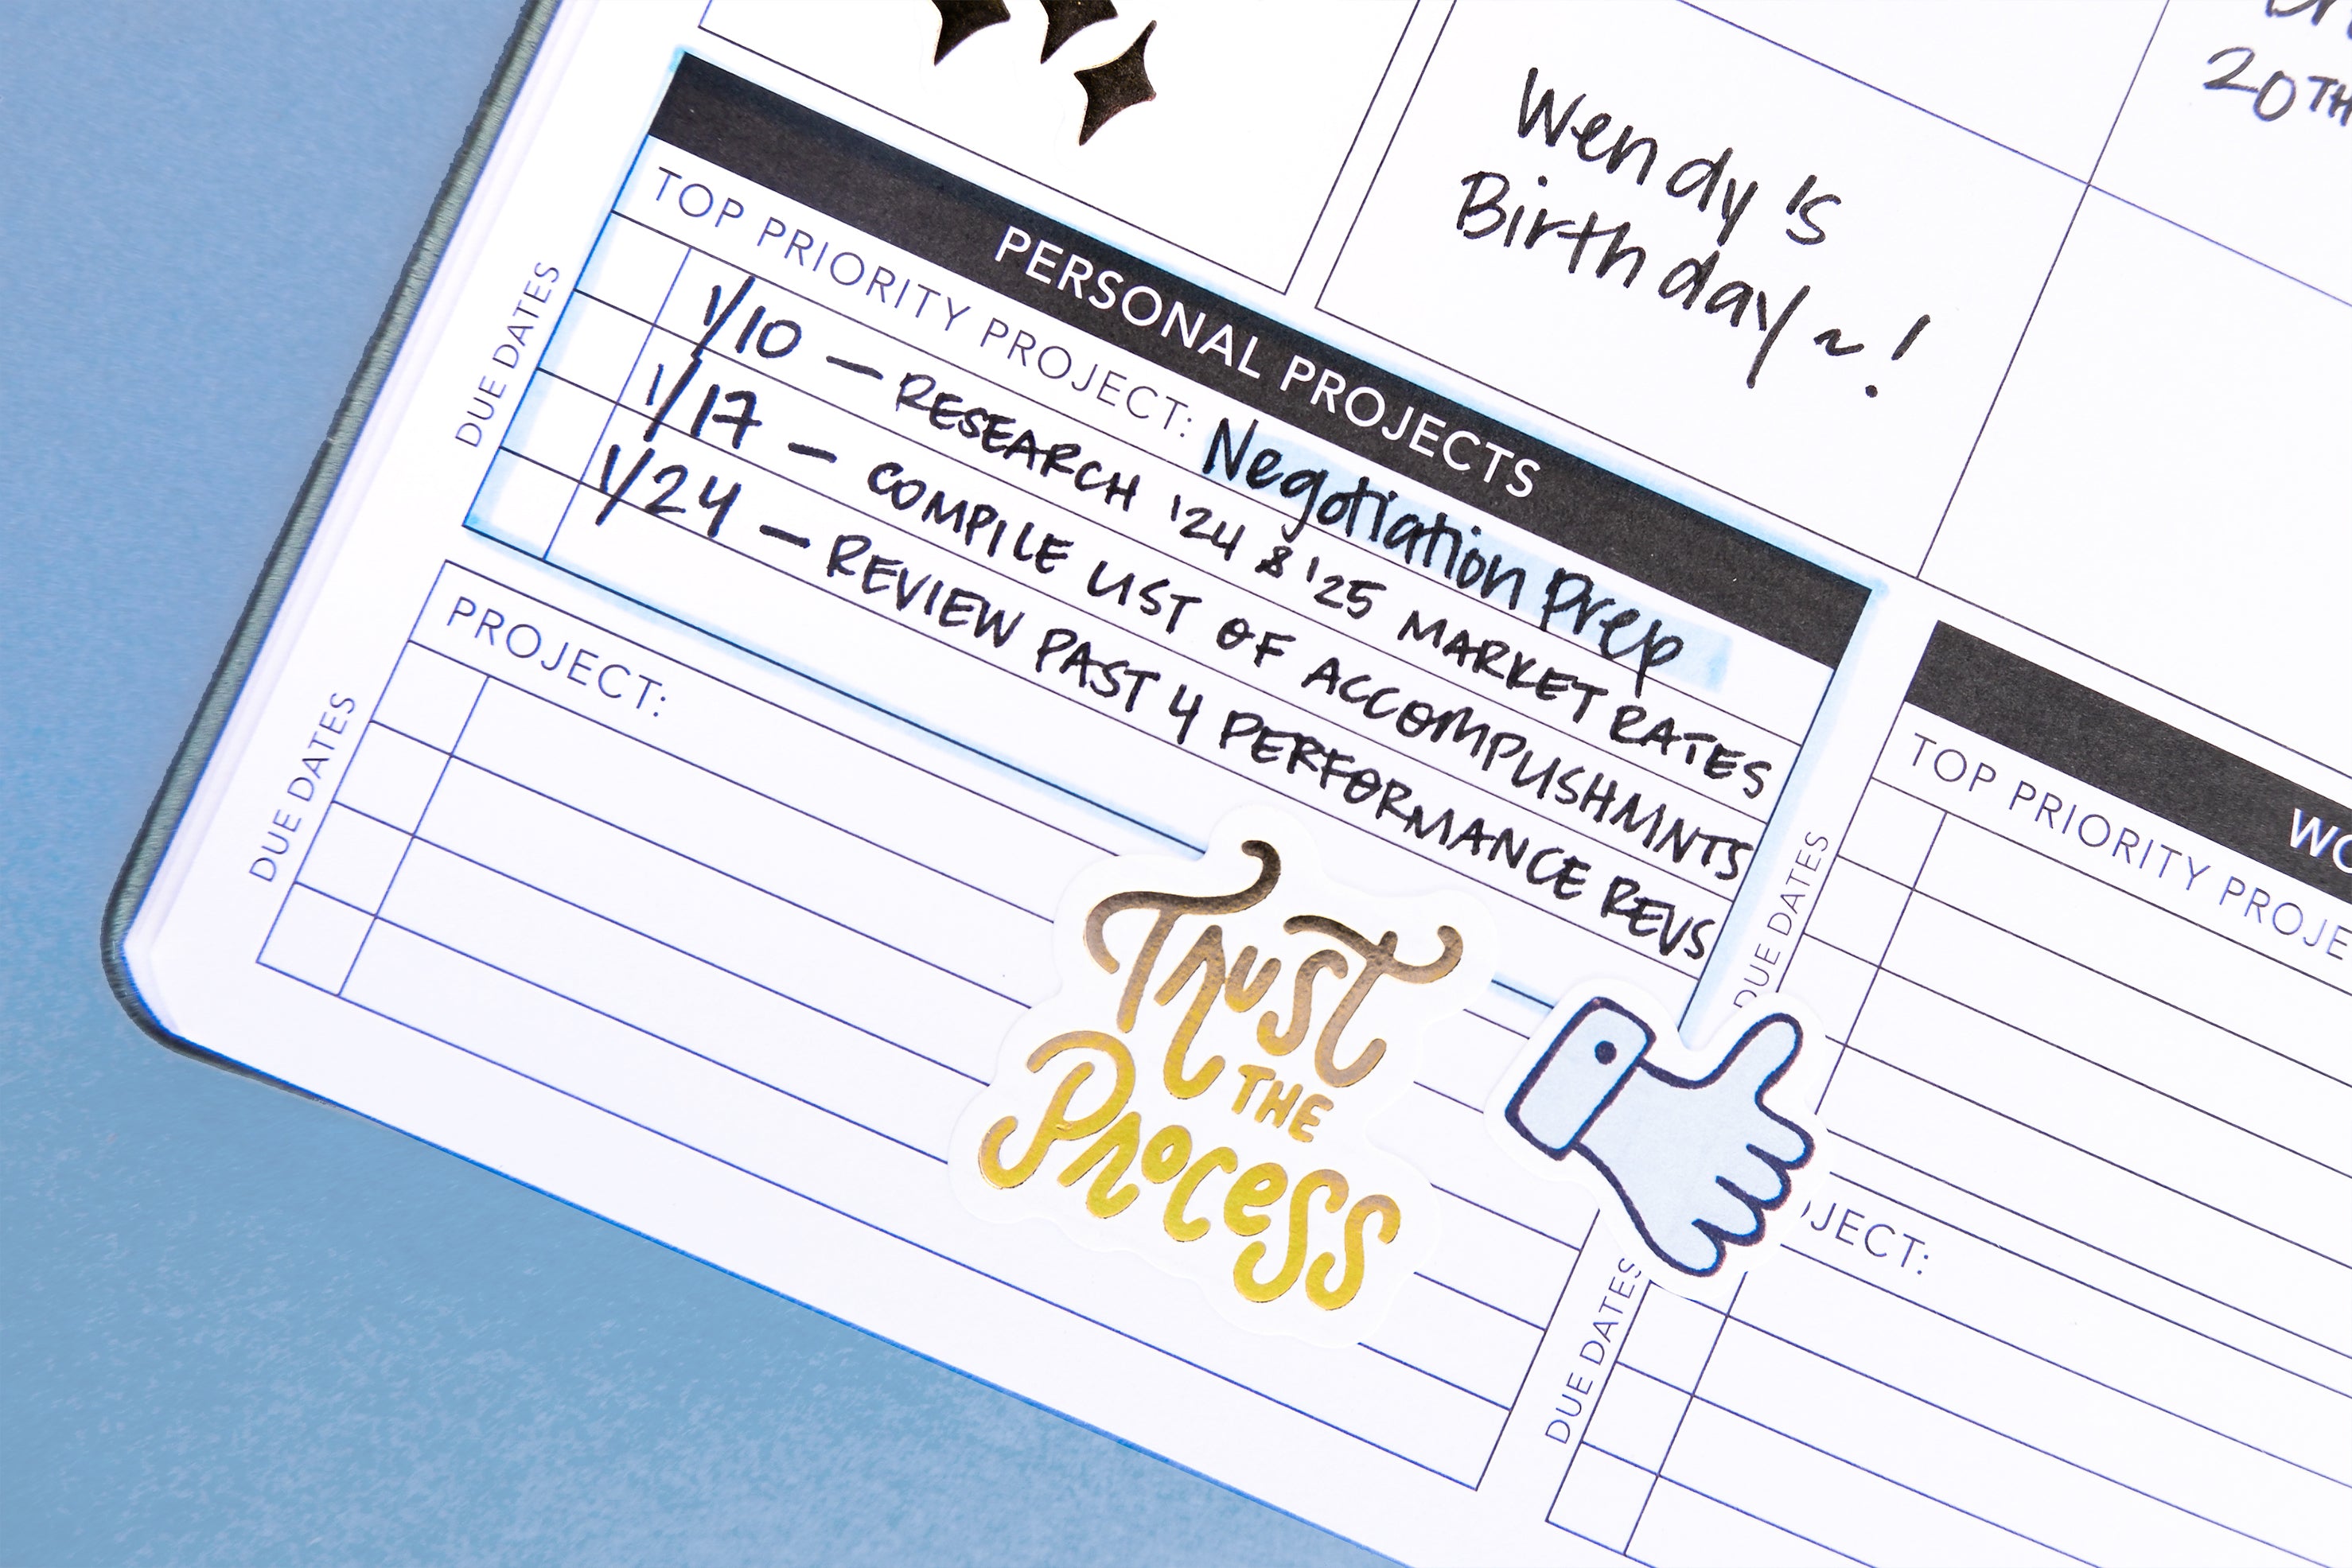 Wendy's
Birthday~!
20TH
PERSONAL PROJECTS
TOP PRIORITY PROJECT: Negotiation Prep
DUE DATES
1/10 – RESEARCH '24 & '25 MARKET RATES
1/17 – COMPILE LIST OF ACCOMPLISHMNTS
1/24 – REVIEW PAST 4 PERFORMANCE REVS
PROJECT:
DUE DATES
TRUST
THE
PROCESS
WO
TOP PRIORITY PROJE
DUE DATES
OJECT:
DUE DATES